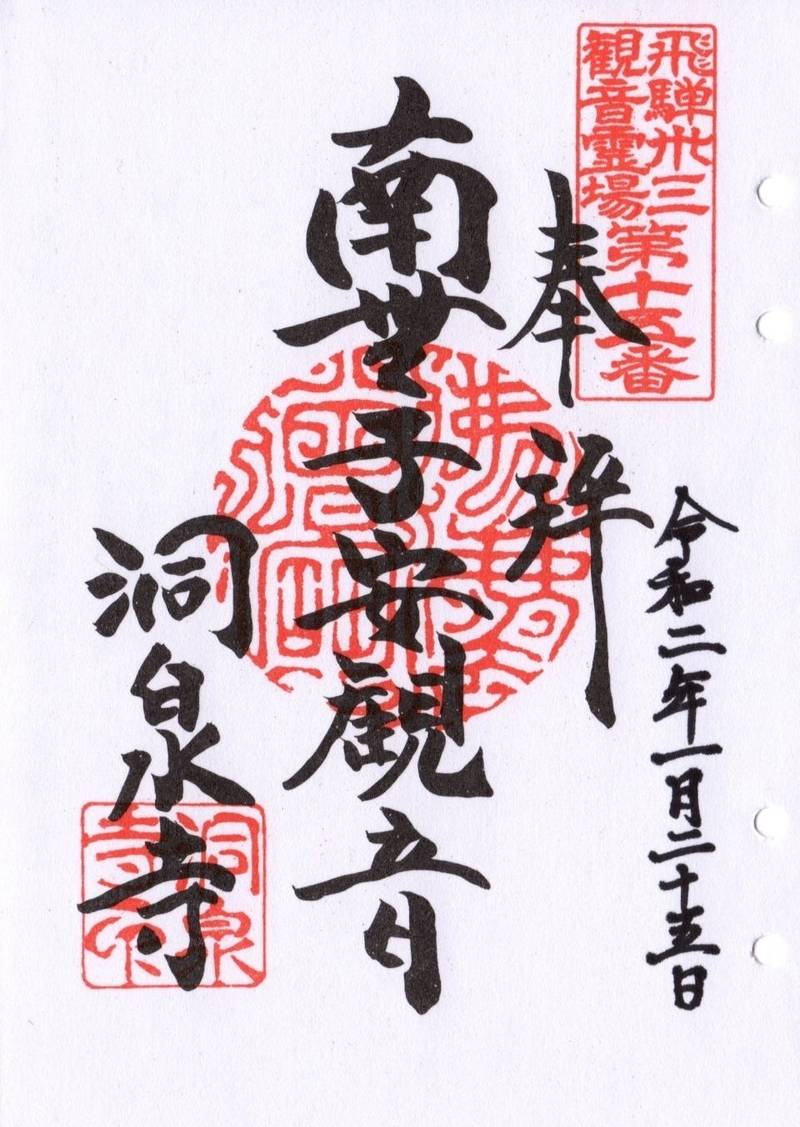 飛騨卅三
観音霊場
第十五番
奉拝
令和二年一月二十五日
南無子安観音
洞泉寺
洞泉
寺印